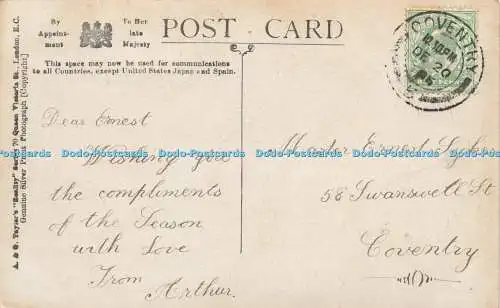 By Appoint-ment
To Her late Majesty
POST CARD
This space may now be used for communications
to all Countries, except United States Japan and Spain.
A. & G. Taylor's "Reality" Series, 70 Queen Victoria St., London, E.C.
Genuine Silver Print Photograph [Copyright]
COVENTRY
DE 20
Dear Ernest
Wishing you
the compliments
of the Season
with Love
From
Arthur.
Master Ernest
58 Swanswell St
Coventry
Dodo-Postcards Dodo-Postcards Dodo-Postcards Dodo-Postcards Dodo-Postcards Dodo-Postcards